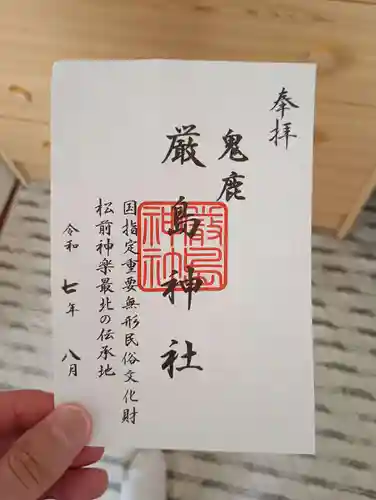 奉拝
鬼鹿
厳島神社
嚴島神社
国指定重要無形民俗文化財
松前神楽最北の伝承地
令和七年八月